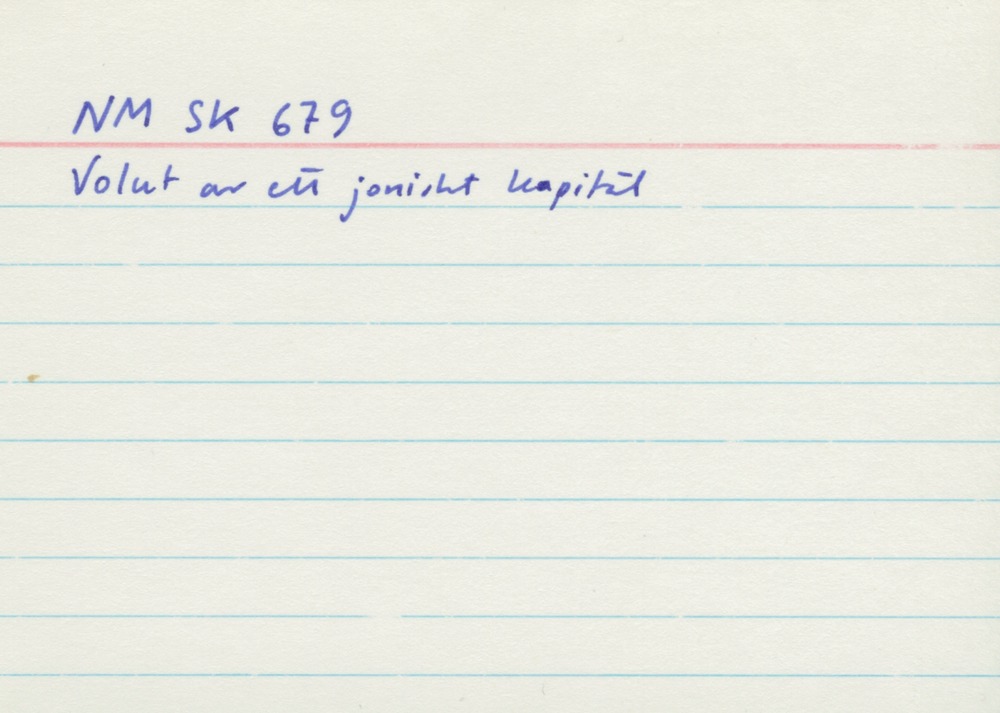 NM SK 679
Volut av ett joniskt kapitäl